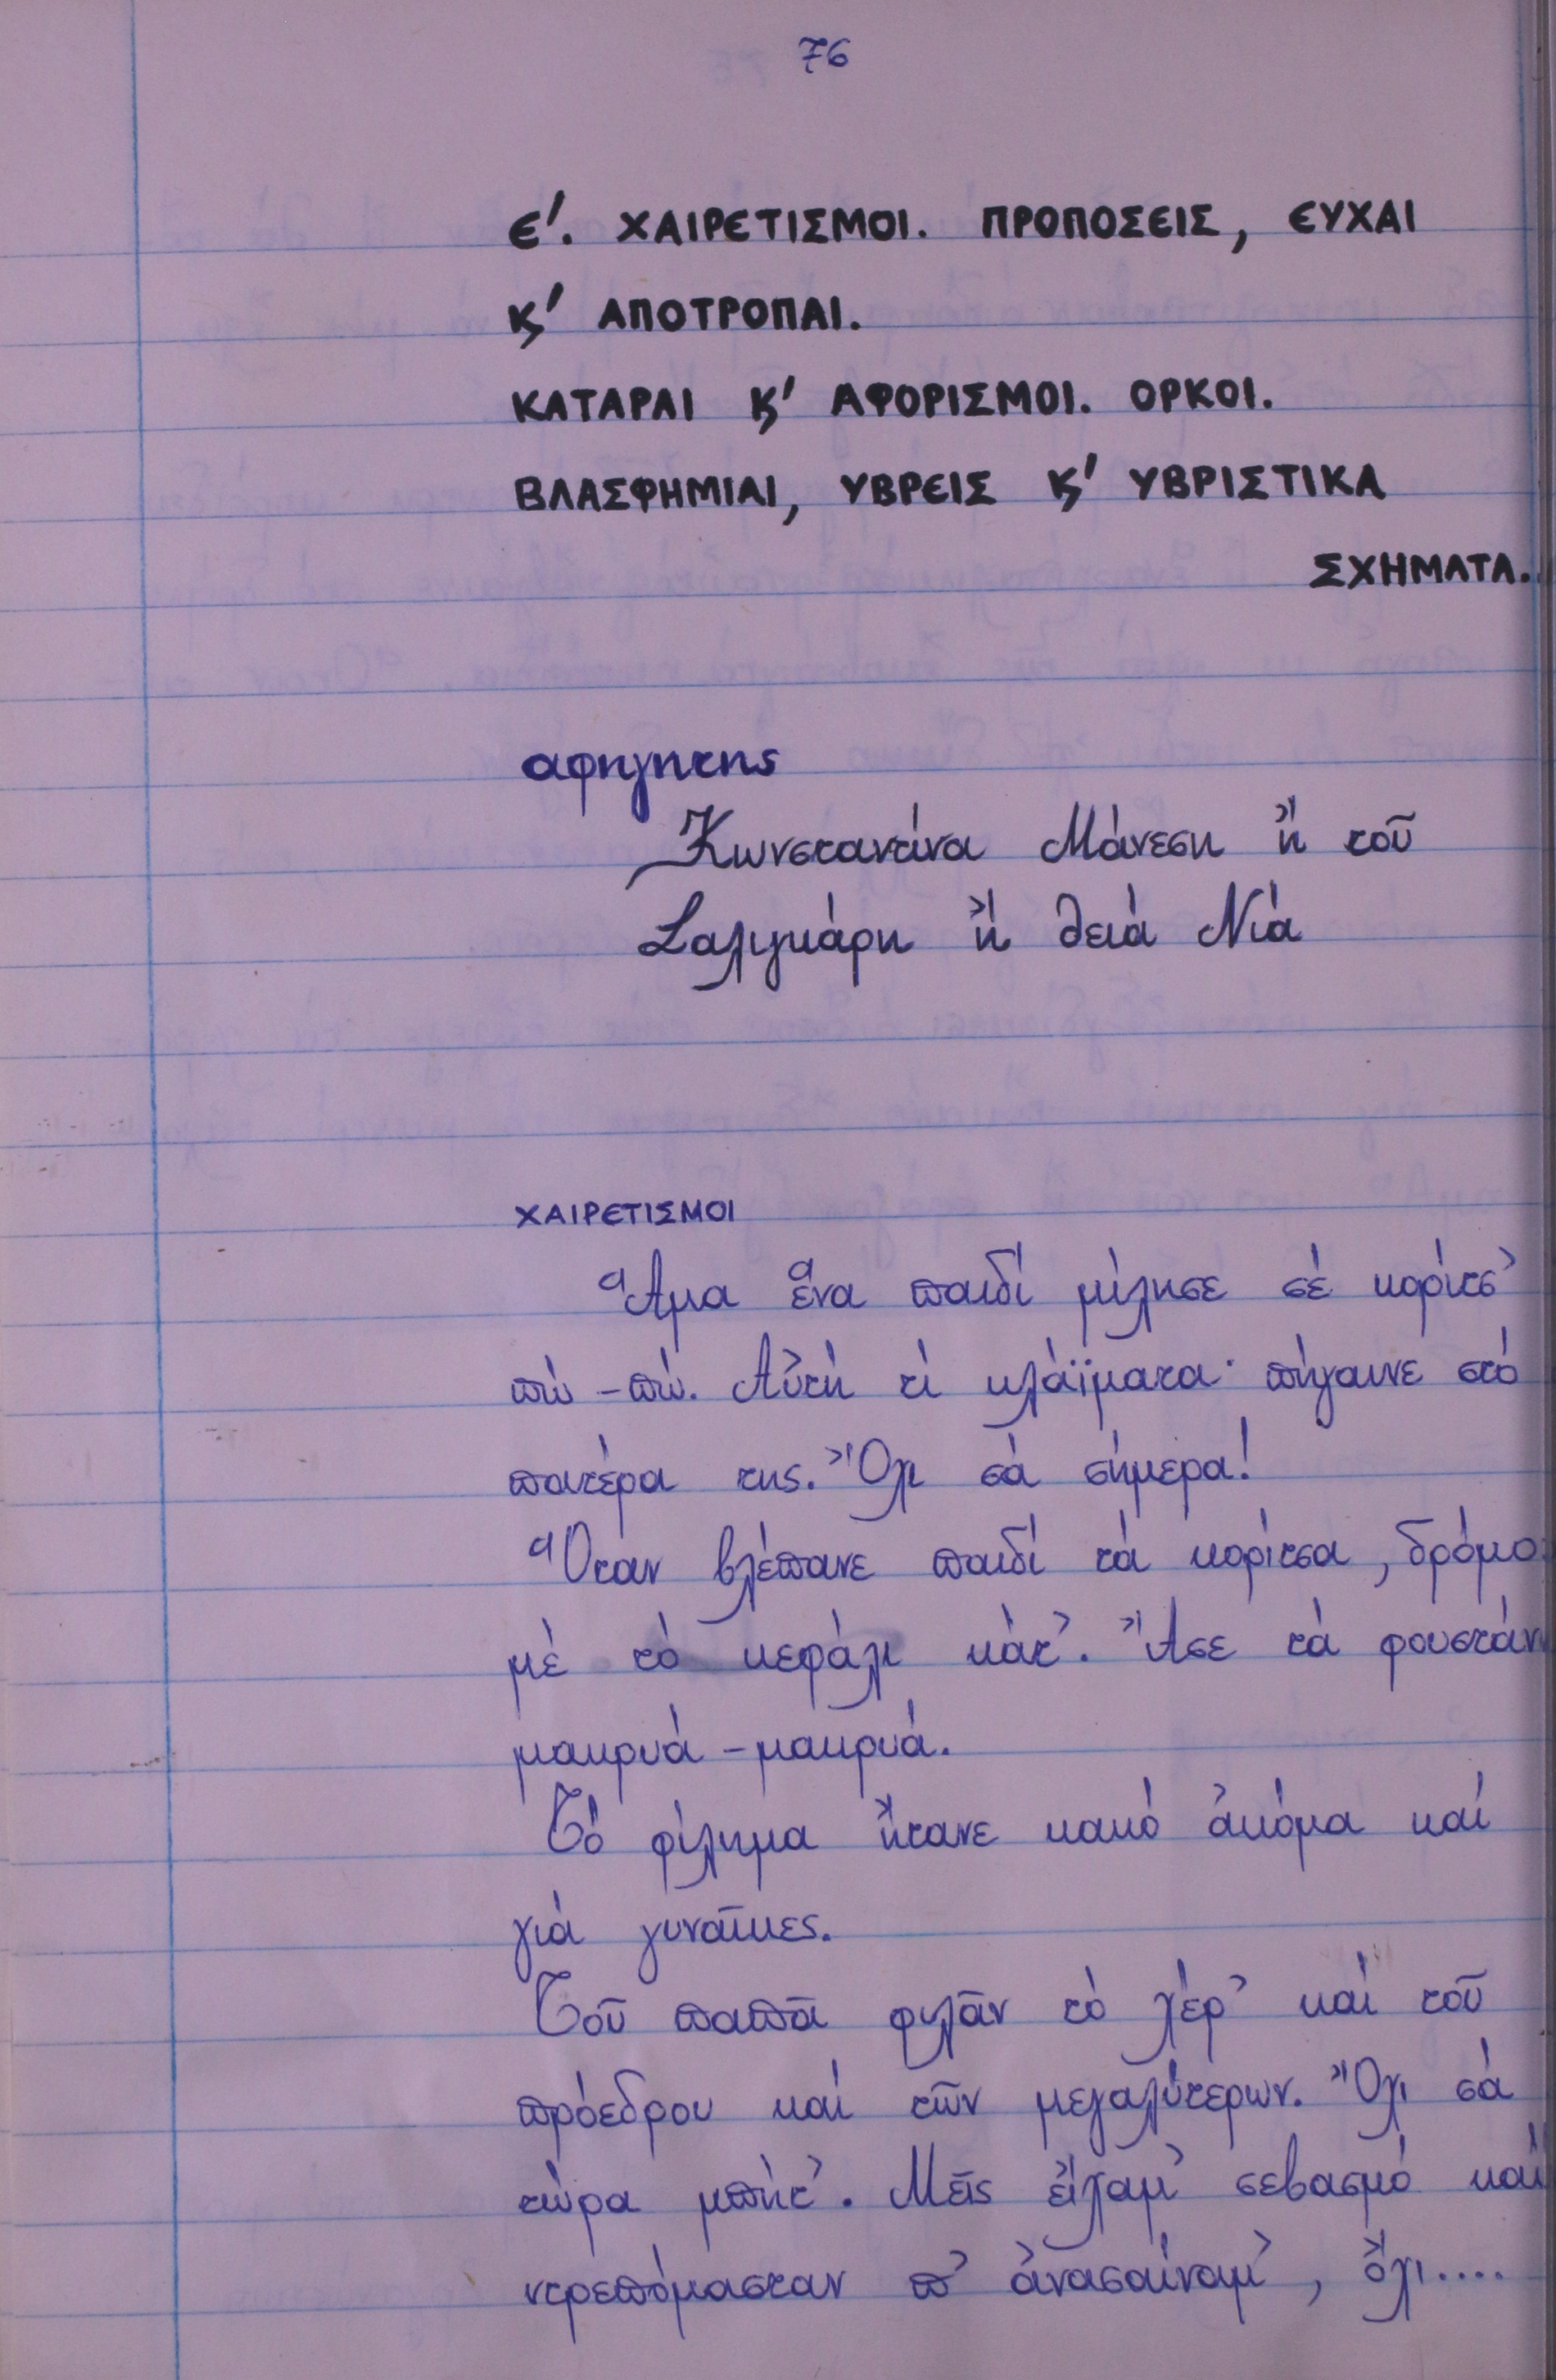 76
Ε'. ΧΑΙΡΕΤΙΣΜΟΙ. ΠΡΟΠΟΣΕΙΣ, ΕΥΧΑΙ
Κ' ΑΠΟΤΡΟΠΑΙ.
ΚΑΤΑΡΑΙ Κ' ΑΦΟΡΙΣΜΟΙ. ΟΡΚΟΙ.
ΒΛΑΣΦΗΜΙΑΙ, ΥΒΡΕΙΣ Κ' ΥΒΡΙΣΤΙΚΑ
ΣΧΗΜΑΤΑ.
αφηγητης
Κωνσταντίνα Μάνεση ἤ τοῦ
Σαλιγκάρη ἤ θειά Νιά
ΧΑΙΡΕΤΙΣΜΟΙ
Ἅμα ἕνα παιδί μίλησε σέ κορίτσ'
πώ - πώ. Αὐτή τί κλάϊματα· πήγαινε στό
πατέρα της. Ὄχι σά σήμερα!
Ὅταν βλέπανε παιδί τά κορίτσα, δρόμο
μέ τό κεφάλι κάτ'. Ἄσε τά φουστάν
μακρυά - μακρυά.
Τό φίλημα ἤτανε κακό ἀκόμα καί
γιά γυναῖκες.
Τοῦ παπᾶ φιλᾶν τό χέρ' καί τοῦ
πρόεδρου καί τῶν μεγαλύτερων. Ὄχι σά
τώρα μπήτ'. Μεῖς εἴχαμ' σεβασμό καί
ντρεπόμασταν π' ἀνασαίναμ', ὄχι....